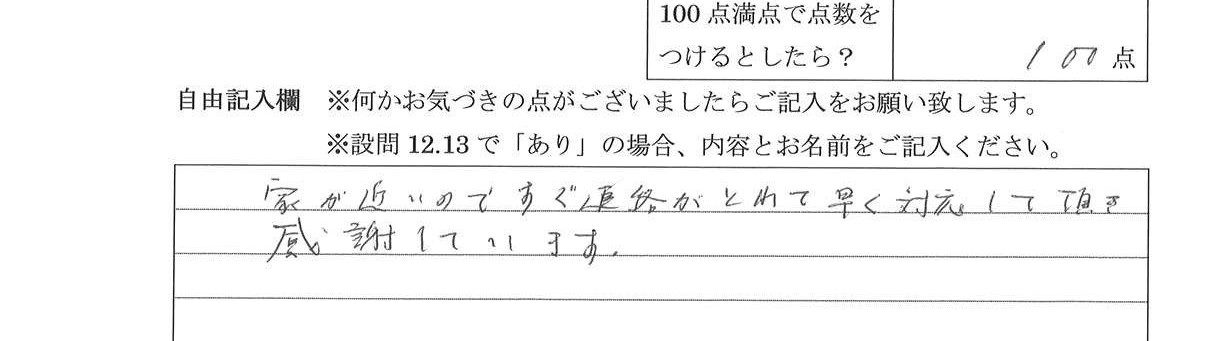 100点満点で点数を
つけるとしたら？
100点
自由記入欄 ※何かお気づきの点がございましたらご記入をお願い致します。
※設問12.13で「あり」の場合、内容とお名前をご記入ください。
家が近いのですぐ連絡がとれて早く対応して頂き
感謝しています.